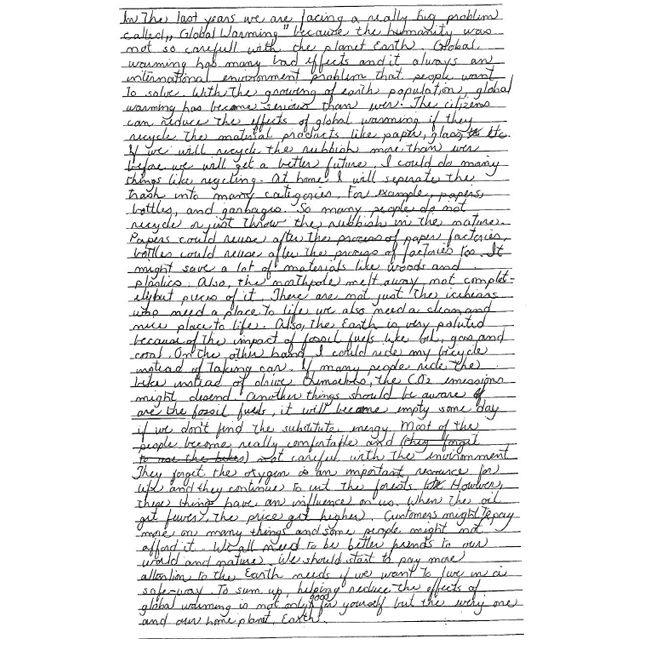 In the last years we are facing a really big problem
called „Global Warming" because the humanity was
not so carefull with the planet Earth. Global
warming has many bad effects and it always an
international environment problem that people want
to solve. With the growing of earth population, global
warming has become serious than ever. The citizens
can reduce the effects of global warming if they
recycle the material products like paper, glass etc.
If we will recycle the rubbish more than ever
before we will get a better future. I could do many
things like recycling. At home I will separate the
trash into many categories. For example, papers,
bottles, and garbages. So many people do not
recycle or just throw the rubbish in the nature.
Papers could reuse after the process of paper factories,
bottles could reuse after the process of factories too. It
might save a lot of materials like woods and
plastics. Also, the northpole melt away not complet-
elybut pieces of it. There are not just the icebears
who need a place to life we also need a clean and
nice place to life. Also, the Earth is very poluted
because of the impact of fossil fuels like oil, gas and
coal. On the other hand I could ride my bicycle
instead of taking car. If many people ride the
bike instead of drive themselves, the CO2 emissions
might disend. Another things should be aware of
are the fossil fuels, it will become empty some day
if we don't find the substitute energy. Most of the
people become really comfortable and (they forget
to use the bikes) not careful with the environment
They forget the oxygen is an important resource for
life and they continue to cut the forests. However,
these things have an influence on us. When the oil
get fewer, the price get higher. Customers might to pay
more on many things and some people might not
afford it. We all need to be better friends to our
world and nature. We should start to pay more
attention to the Earth needs if we want to live in a
safe-way. To sum up, helping reduce the effects of
global warming is not only good for yourself but the every one
and our home planet, Earth.